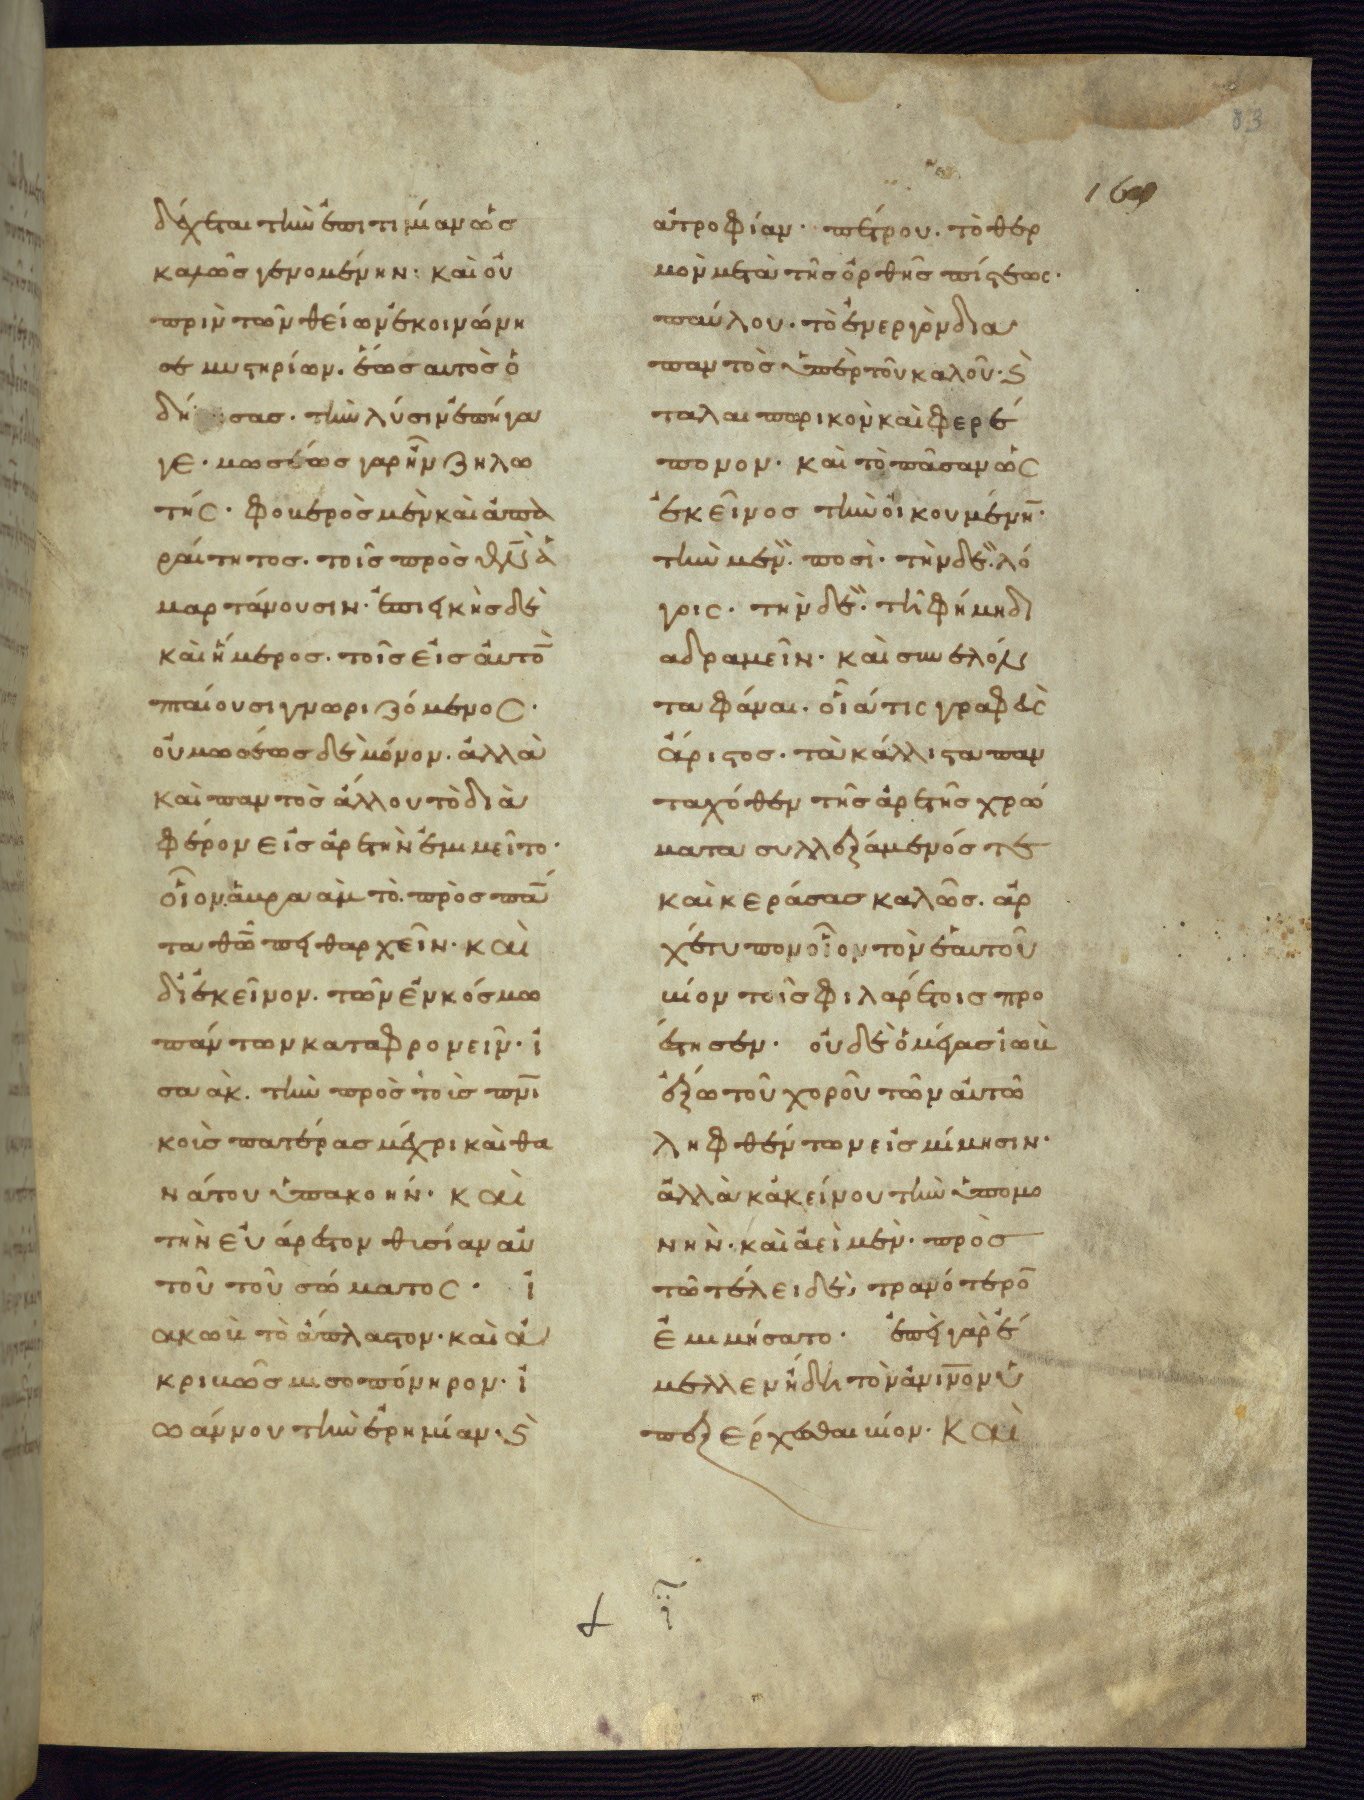 83
160
δέχεται τὴν ἐπιτιμίαν ὡς
καλῶς γενομένην· καὶ οὐ
πρὶν τῶν θείων ἐκοινώνη
σε μυστηρίων. ἕως αὐτὸς ὁ
δή σας. τὴν λύσιν ἐπήγα
γε. μωσέως γὰρ ἦν ζηλω
τής. φοβερὸς μὲν καὶ ἀπα
ραίτητος. τοῖς πρὸς θν̅ ἁ
μαρτάνουσιν. ἐπιεικὴς δὲ
καὶ ἥμερος. τοῖς εἰς αὐτὸ̅
πταίουσι γνωριζόμενος.
οὐ μωσέως δὲ μόνον. ἀλλὰ
καὶ παντὸς ἄλλου τὸ δια
φέρον εἰς ἀρετὴν ἐμιμεῖτο.
οἷον ἀβρααμ τὸ. πρὸς πά̅
τα θῶ̅ πειθαρχεῖν. καὶ
δι' ἐκεῖνον. τῶν ἐν κόσμω
πάντων καταφρονεῖν. ἰ
σαάκ. τὴν πρὸς τοὺς πνι̅
κοὺς πατέρας μέχρι καὶ θα
νάτου ὑπακοήν. καὶ
τὴν εὐάρεστον θυσίαν αὐ
τοῦ τοῦ σώματος. ἰ
ακὼβ τὸ ἄπλαστον. καὶ ἀ
κριβῶς μισοπόνηρον. ἰ
ωάννου τὴν ἐρημίαν. ϗ
ἀτροφίαν. πέτρου. τὸ θερ
μὸν μετὰ τῆς ὀρθῆς πίστεως.
παύλου. τὸ ἐνεργὸν δια
παντὸς ὑπὲρ τοῦ καλοῦ. ϗ
ταλαιπωρικὸν καὶ φερέ
πονον. καὶ τὸ πᾶσαν ὡς
ἐκεῖνος τὴν οἰκουμένη̅.
τὴν μὲν. ποσὶ. τὴν δὲ. λό
γοις. τὴν δὲ. τῆ φήμη δι
αδραμεῖν. καὶ συνελόν
τα φάναι. οἷά τις γραφεὺς
ἄριστος. τὰ κάλλιστα παν
ταχόθεν τῆς ἀρετῆς χρώ
ματα συλλεξάμενός τε
καὶ κεράσας καλῶς. ἀρ
χέτυπον οἷον τὸν ἑαυτοῦ
βίον τοῖς φιλαρέτοις προ
έστησεν. οὐδὲ ὁ μέγας ἰὼβ
ἔξω τοῦ χοροῦ τῶν αὐτῶ
ληφθέντων εἰς μίμησιν.
ἀλλὰ κἀκείνου τὴν ὑπομο
νὴν. καὶ ἀεὶ μὲν. πρὸς
τῶ τέλει δὲ, τρανότερο̅
ἐμιμήσατο. ἐπεὶ γὰρ ἔ
μελλεν ἤδη τὸν ἀνι̅νον ὑ
πεξέρχεσθαι βίον. καὶ
ϊ